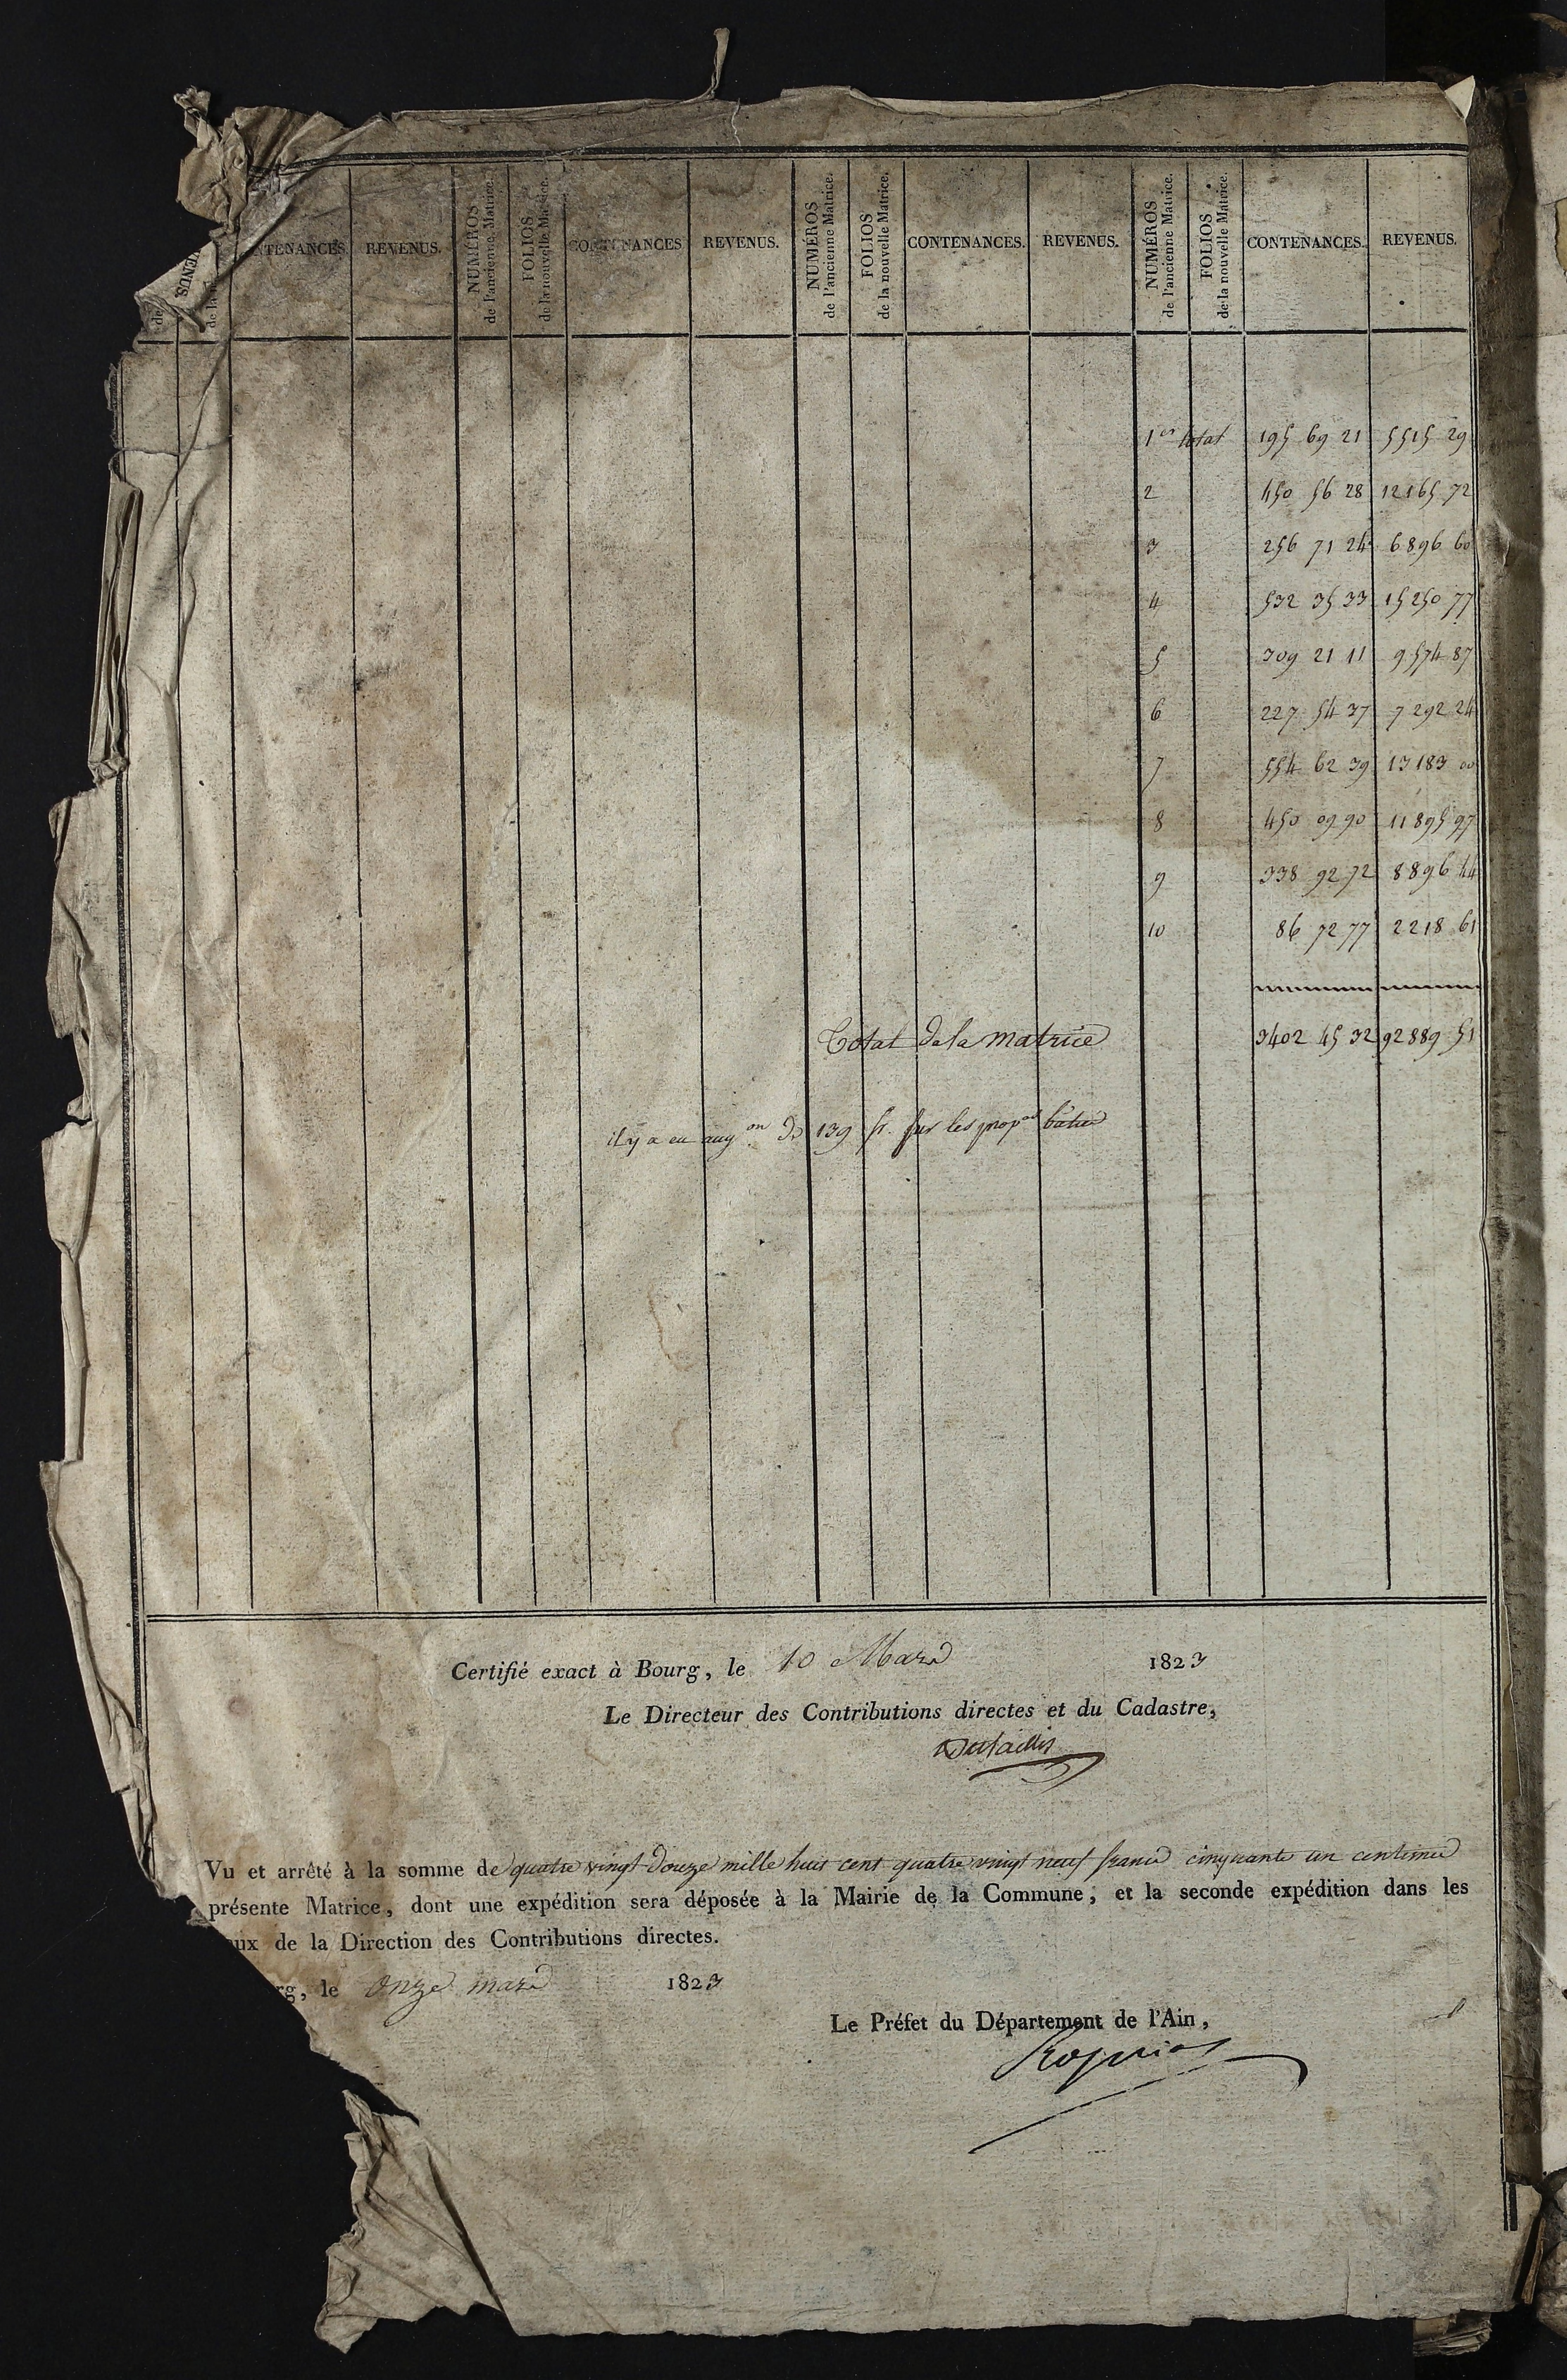 NTENANCES. REVENUS. NUMÉROS de l'ancienne Matrice. FOLIOS de la nouvelle Matrice. CONTENANCES REVENUS. NUMÉROS de l'ancienne Matrice. FOLIOS de la nouvelle Matrice. CONTENANCES. REVENUS. NUMÉROS de l'ancienne Matrice. FOLIOS de la nouvelle Matrice. CONTENANCES. REVENUS.
VENUS. de la
1er total 195 69 21 5515 29
2 450 56 28 12165 72
3 256 71 24 6896 60
4 532 35 33 15250 77
5 309 21 11 9574 87
6 227 54 37 7292 24
7 554 62 39 13183 00
8 450 09 90 11895 97
9 338 92 72 8896 44
10 86 72 77 2218 61
Total de la matrice 3402 45 32 92889 51
il y a eu augon de 139 fr. sur les propés bâties
Certifié exact à Bourg, le 10 Mars 1823
Le Directeur des Contributions directes et du Cadastre,
Vu et arrêté à la somme de quatre vingt douze mille huit cent quatre vingt neuf francs cinquante un centimes
présente Matrice, dont une expédition sera déposée à la Mairie de la Commune, et la seconde expédition dans les
ux de la Direction des Contributions directes.
rg, le onze mars 1823
Le Préfet du Département de l'Ain,